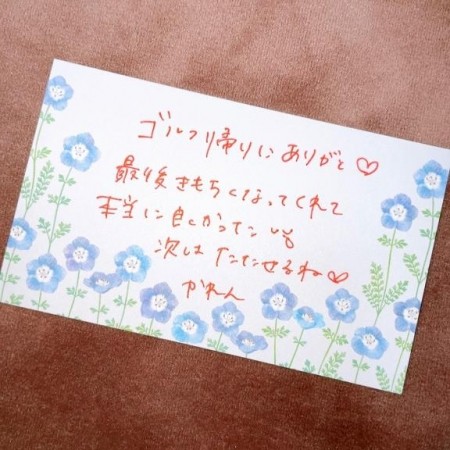 ゴルフ帰りにありがと♡
最後きもちくなってくれて
本当に良かった
次は たたせるね♡
かれん